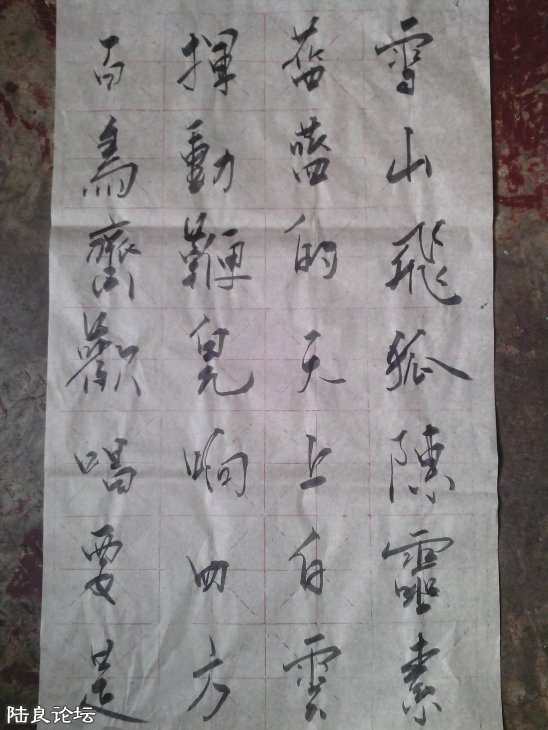 雪山飛狐陳靈素
藍藍的天上白雲
揮動鞭兒响四方
百鳥齊歡唱要是
陆良论坛